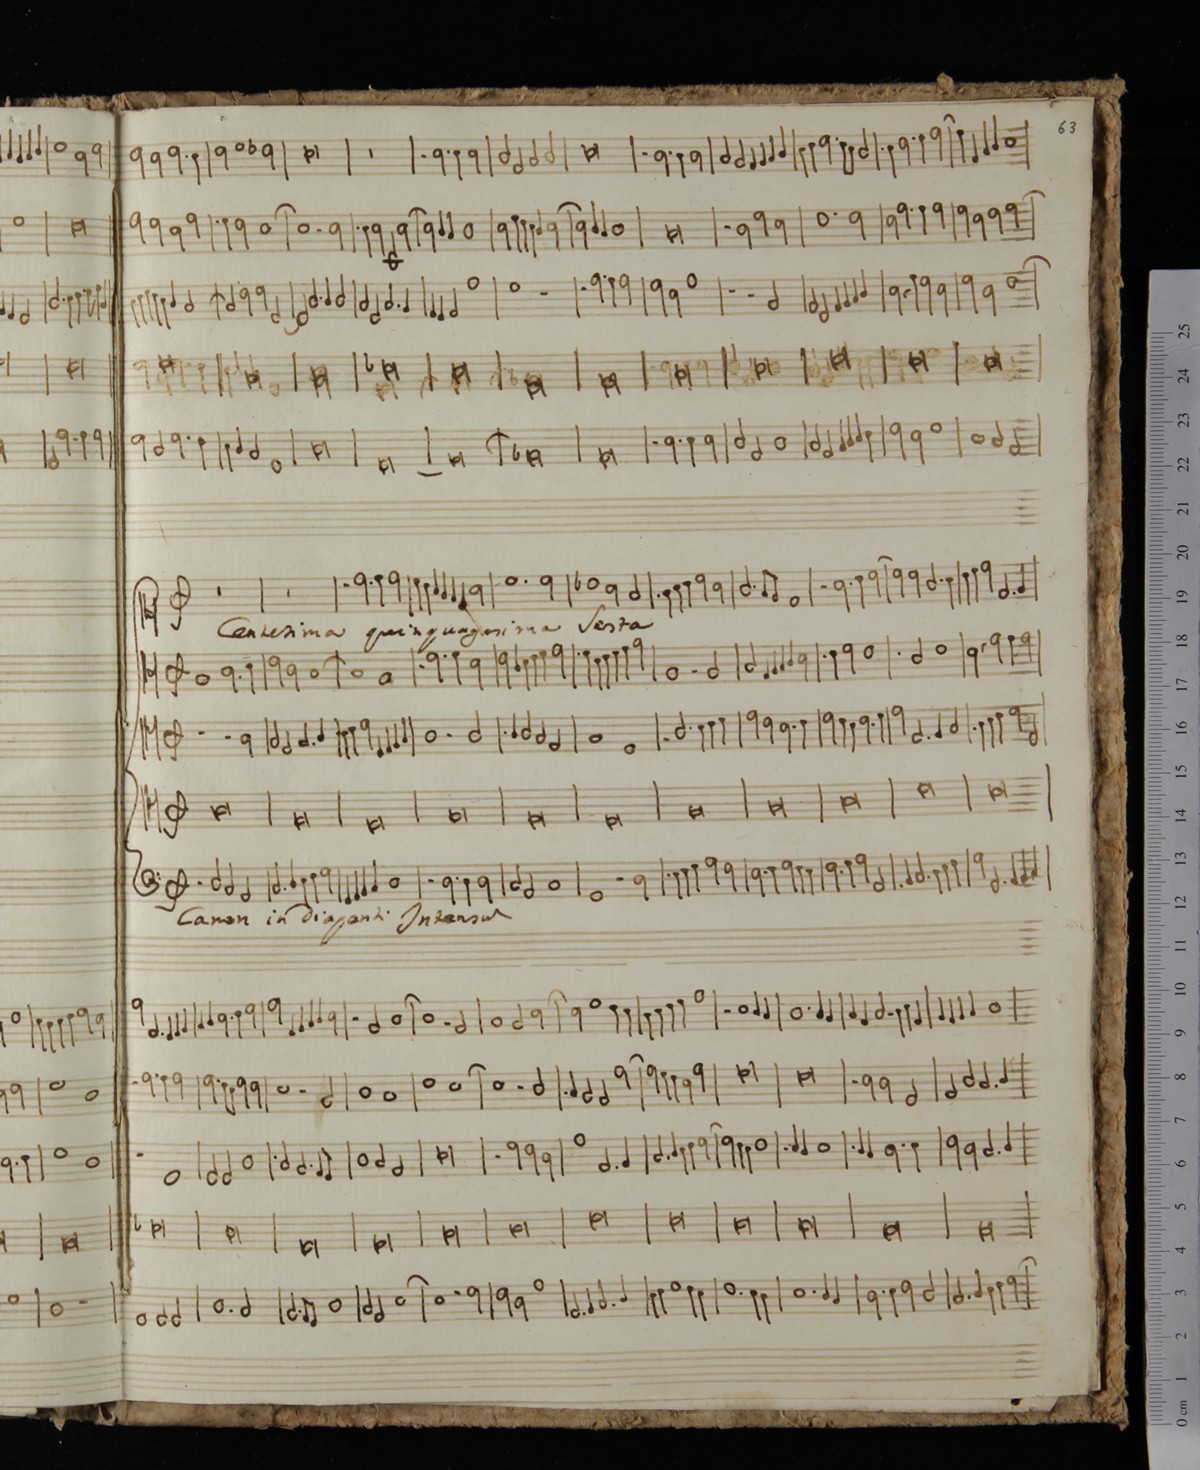 63
Centesima quinquagesima Sexta
Canon in Diapenti Intensu
25
24
23
22
21
20
19
18
17
16
15
14
13
12
11
10
9
8
7
6
5
4
3
2
1
0 cm